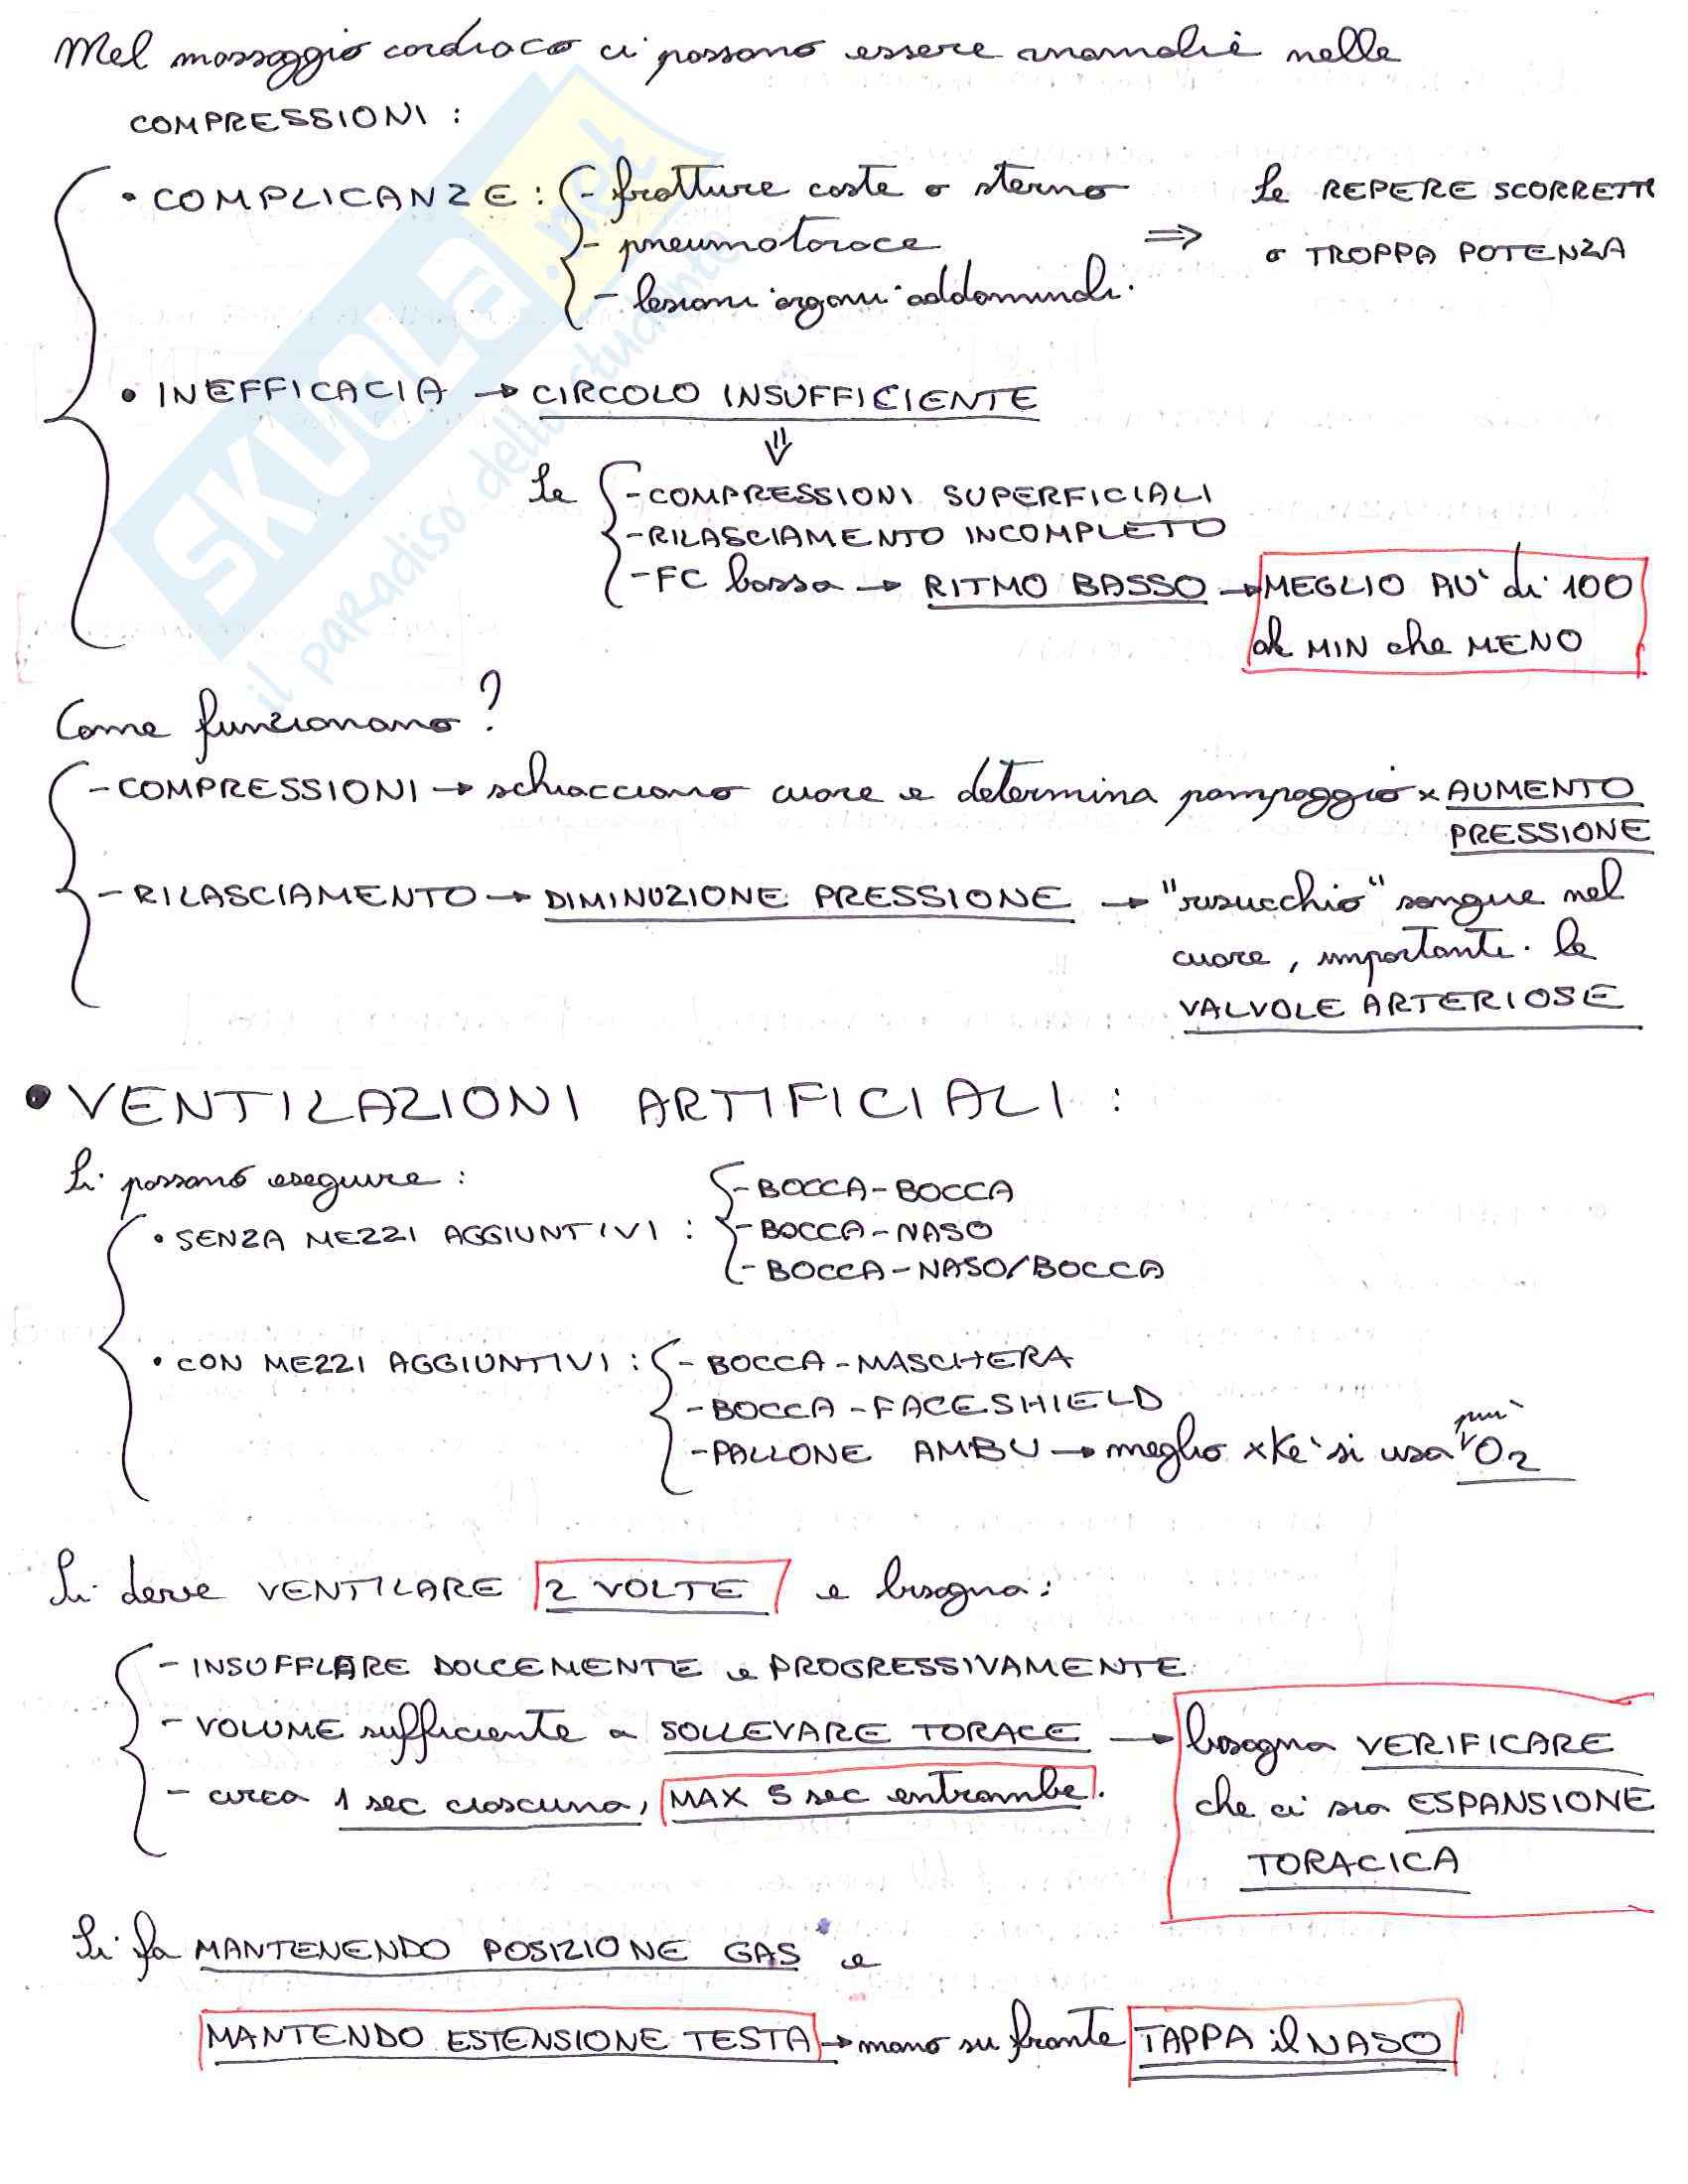 Nel massaggio cardiaco ci possono essere anomalie nelle
COMPRESSIONI :
• COMPLICANZE : - fratture coste o sterno
- pneumotorace
- lesioni organi addominali.
⇒ Se REPERE SCORRETTI
o TROPPA POTENZA
• INEFFICACIA → CIRCOLO INSUFFICIENTE
⇓
Se - COMPRESSIONI SUPERFICIALI
- RILASCIAMENTO INCOMPLETO
- FC bassa → RITMO BASSO → MEGLIO PIÙ di 100
al MIN che MENO
Come funzionano?
- COMPRESSIONI → schiacciano cuore e determina pompaggio x AUMENTO
PRESSIONE
- RILASCIAMENTO → DIMINUZIONE PRESSIONE → "risucchio" sangue nel
cuore, importanti le
VALVOLE ARTERIOSE
• VENTILAZIONI ARTIFICIALI :
Si possono eseguire :
• SENZA MEZZI AGGIUNTIVI : - BOCCA-BOCCA
- BOCCA-NASO
- BOCCA-NASO/BOCCA
• CON MEZZI AGGIUNTIVI : - BOCCA-MASCHERA
- BOCCA-FACESHIELD
- PALLONE AMBU → meglio xkè si usa più O2
Si deve VENTILARE 2 VOLTE e bisogna :
- INSUFFLARE DOLCEMENTE e PROGRESSIVAMENTE
- VOLUME sufficiente a SOLLEVARE TORACE → bisogna VERIFICARE
che ci sia ESPANSIONE
TORACICA
- circa 1 sec ciascuna, MAX 5 sec entrambe.
Si fa MANTENENDO POSIZIONE GAS* e
MANTENDO ESTENSIONE TESTA → mano su fronte TAPPA il NASO
SKUOLA.net
il paradiso dello studente